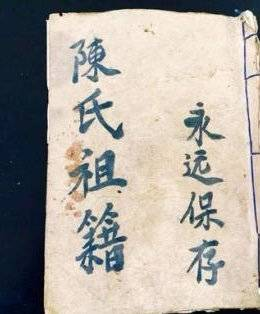 永远保存
陳氏祖籍